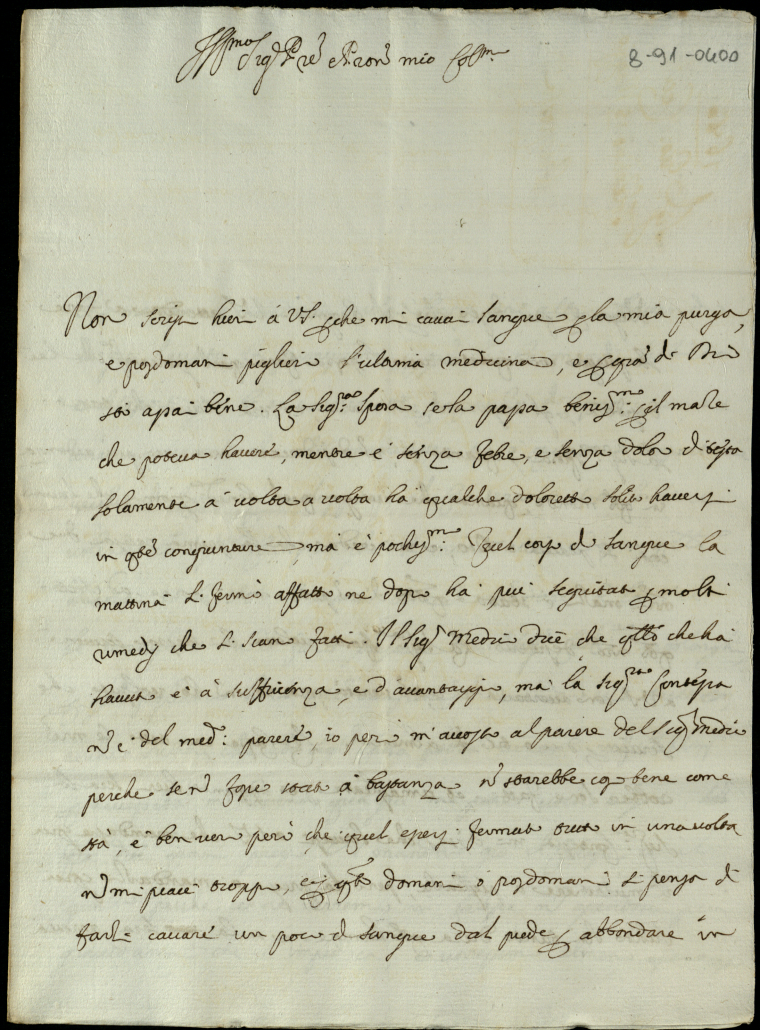 Ill.mo Sig.r P're e P'ron mio Col.mo
8-91-0400
Non scrissi hieri à V.S. che mi cavai sangue la mia purga,
e posdomani piglierò l'ultima medicina, e gra' di Dio
stò assai bene. La Sig.ra Sposa se la passa beniss.mo: il male
che poteva havere, mentre è senza febre, e senza dolor di testa
solamente à volta a volta hà qualche doloretto solito haversi
in q'te congiunture, mà è pochiss.mo: Quel corso di sangue la
mattina si fermò affatto ne dopo hà più seguitato molti
rimedij che si sian fatti. Il Sig.r Medico dice che q'llo che hà
havuto è à sufficienza, e d'avantaggio, mà la Sig.ra Contessa
n' è del med.o: parere, io però m'accosto al parere del Sig.r Medico
perche se n' fosse stato à bastanza n' starebbe così bene come
stà, è ben vero però che quel essersi fermato tutto in una volta
n' mi piace troppo, e q'to domani ò posdomani si pensa di
farli cavare un poco di sangue dal piede abbondare in